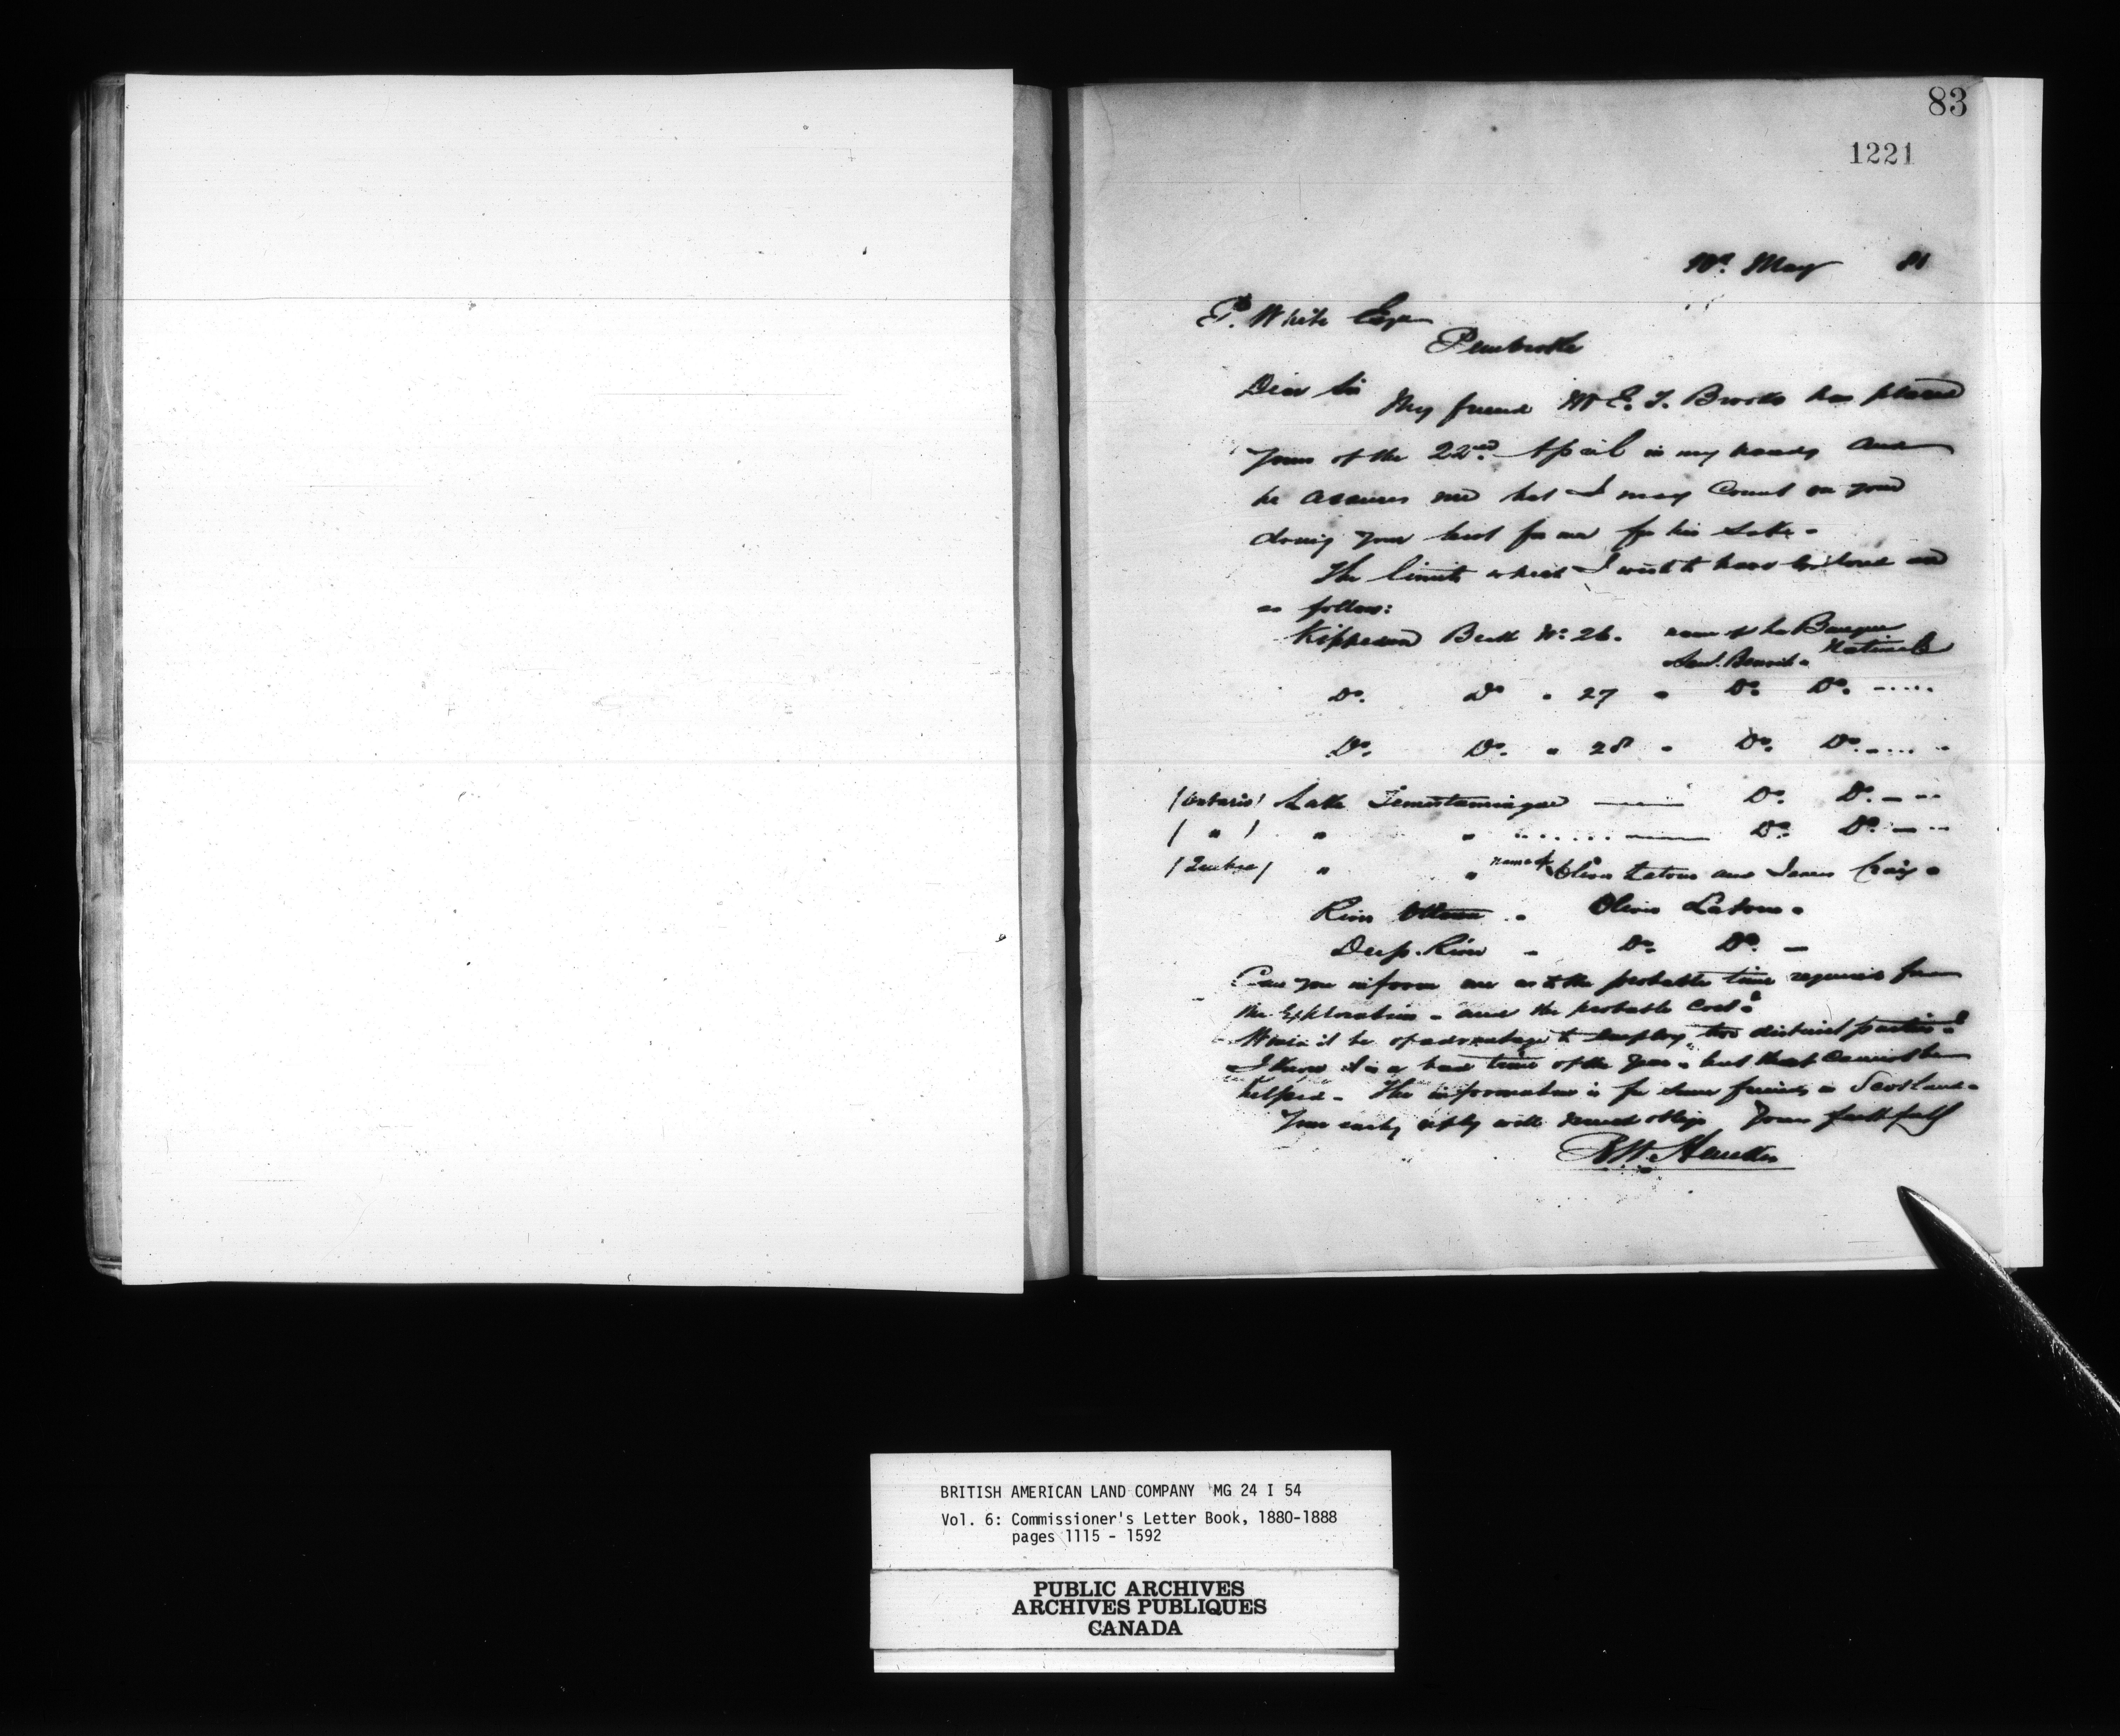 83
1221
10th May 81
P. White Esqr
Pembroke
Dear Sir My friend Mr E. T. Brooks has placed
yours of the 22nd April in my hands and
he assures me that I may count on your
doing your best for me for his sake -
The limits which I wish to have explored are
as follow:
Kippewa Berth No 26. name of La Banque
Nationale
Do. Do " 27 " Do. Do. -----
Do. Do. " 28 " Do. Do. -----
(Ontario) Lake Temiscamingue —— Do. Do. - --
( " ) " " ...... —— Do. Do. - --
(Quebec) " " name of Oliver Latour and James Craig -
River Ottawa - Oliver Latour -
Deep River - Do. Do. -
Can you inform me as to the probable time required for
the Exploration - and the probable cost?
Would it be of advantage to employ two distinct parties?
I know it is a bad time of the year - but that cannot be
helped - The information is for some friends in Scotland -
Your early reply will much oblige Yours faithfully
R. W. Heneker
BRITISH AMERICAN LAND COMPANY MG 24 I 54
Vol. 6: Commissioner's Letter Book, 1880-1888
pages 1115 - 1592
PUBLIC ARCHIVES
ARCHIVES PUBLIQUES
CANADA